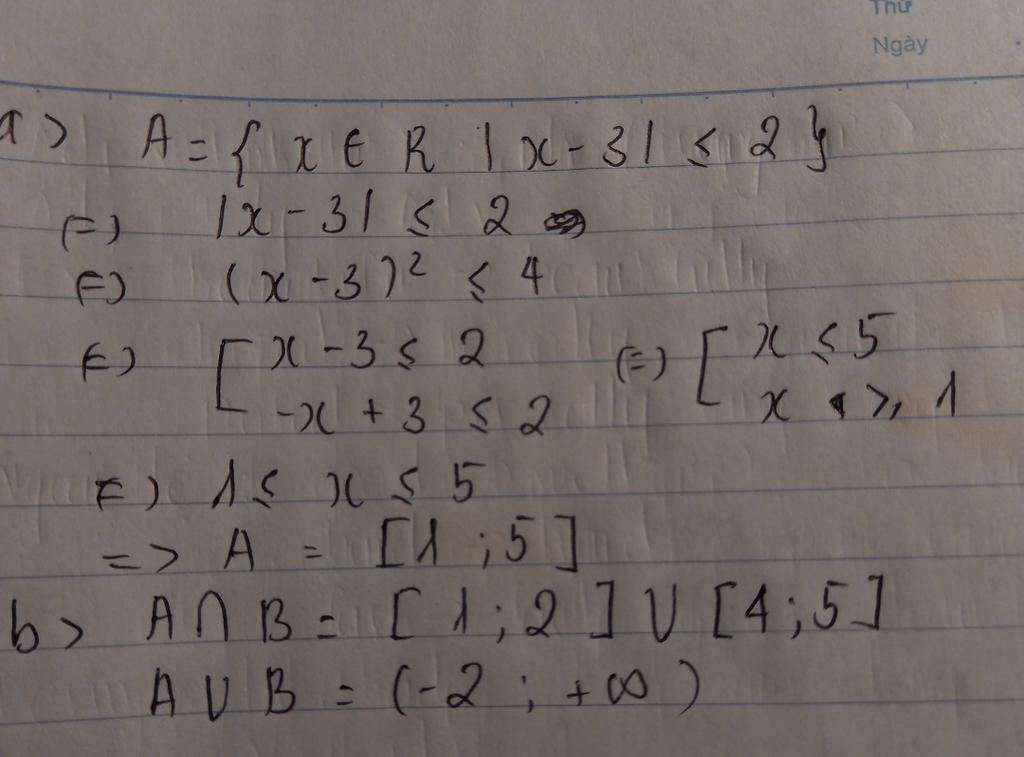 Thứ
Ngày
a> A = { x ∈ R | x - 3 | ≤ 2 }
(=) | x - 3 | ≤ 2
(=) ( x - 3 )² ≤ 4
(=) [ x - 3 ≤ 2 (=) [ x ≤ 5
-x + 3 ≤ 2 x ≥ 1
(=) 1 ≤ x ≤ 5
=> A = [ 1 ; 5 ]
b> A ∩ B = [ 1 ; 2 ] ∪ [ 4 ; 5 ]
A ∪ B = ( -2 ; +∞ )